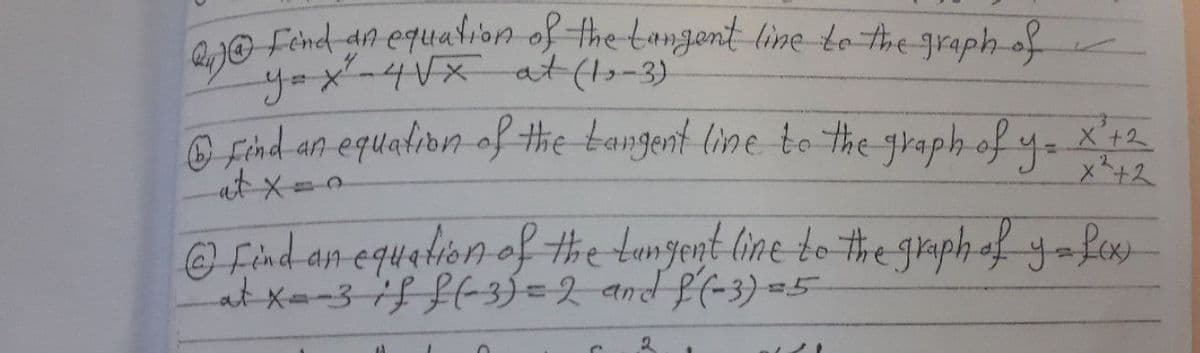 Q4) ⓐ Find an equation of the tangent line to the graph of
y = x⁴ - 4√x at (1, -3)
ⓑ Find an equation of the tangent line to the graph of y = (x³+2)/(x²+2)
at x = 0
ⓒ Find an equation of the tangent line to the graph of y = f(x)
at x = -3 if f(-3) = 2 and f'(-3) = 5